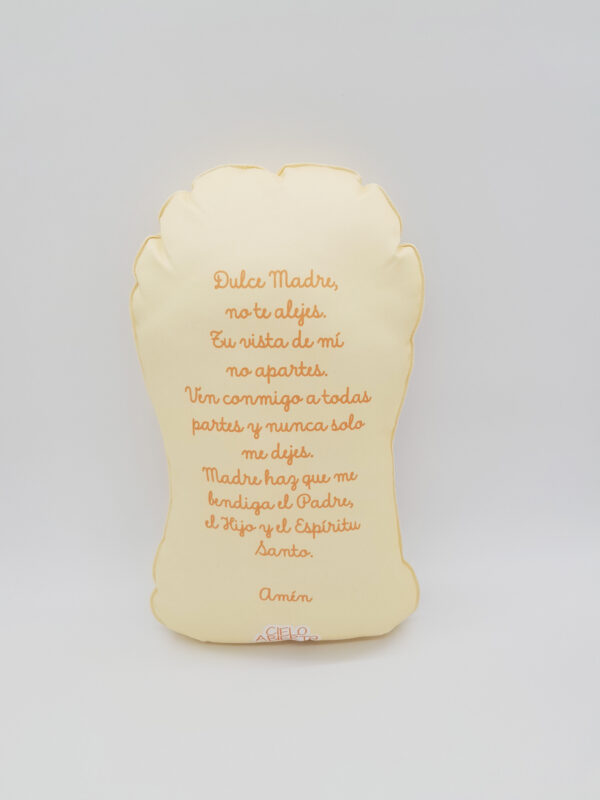 Dulce Madre,
no te alejes.
Tu vista de mí
no apartes.
Ven conmigo a todas
partes y nunca solo
me dejes.
Madre haz que me
bendiga el Padre,
el Hijo y el Espíritu
Santo.
Amén
CIELO
ABIERTO